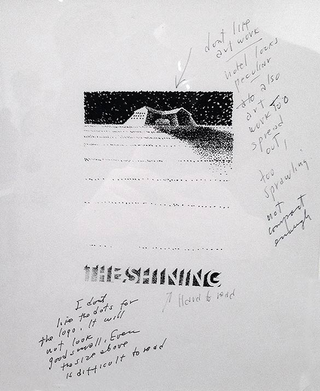 dont like
art work
hotel looks
peculiar
also
art
work too
spread
out!
too
sprawling
not
compact
enough
THE SHINING
Hard to read
I don't
like the dots for
the logo. It will
not look
good small. Even
the size above
is difficult to read